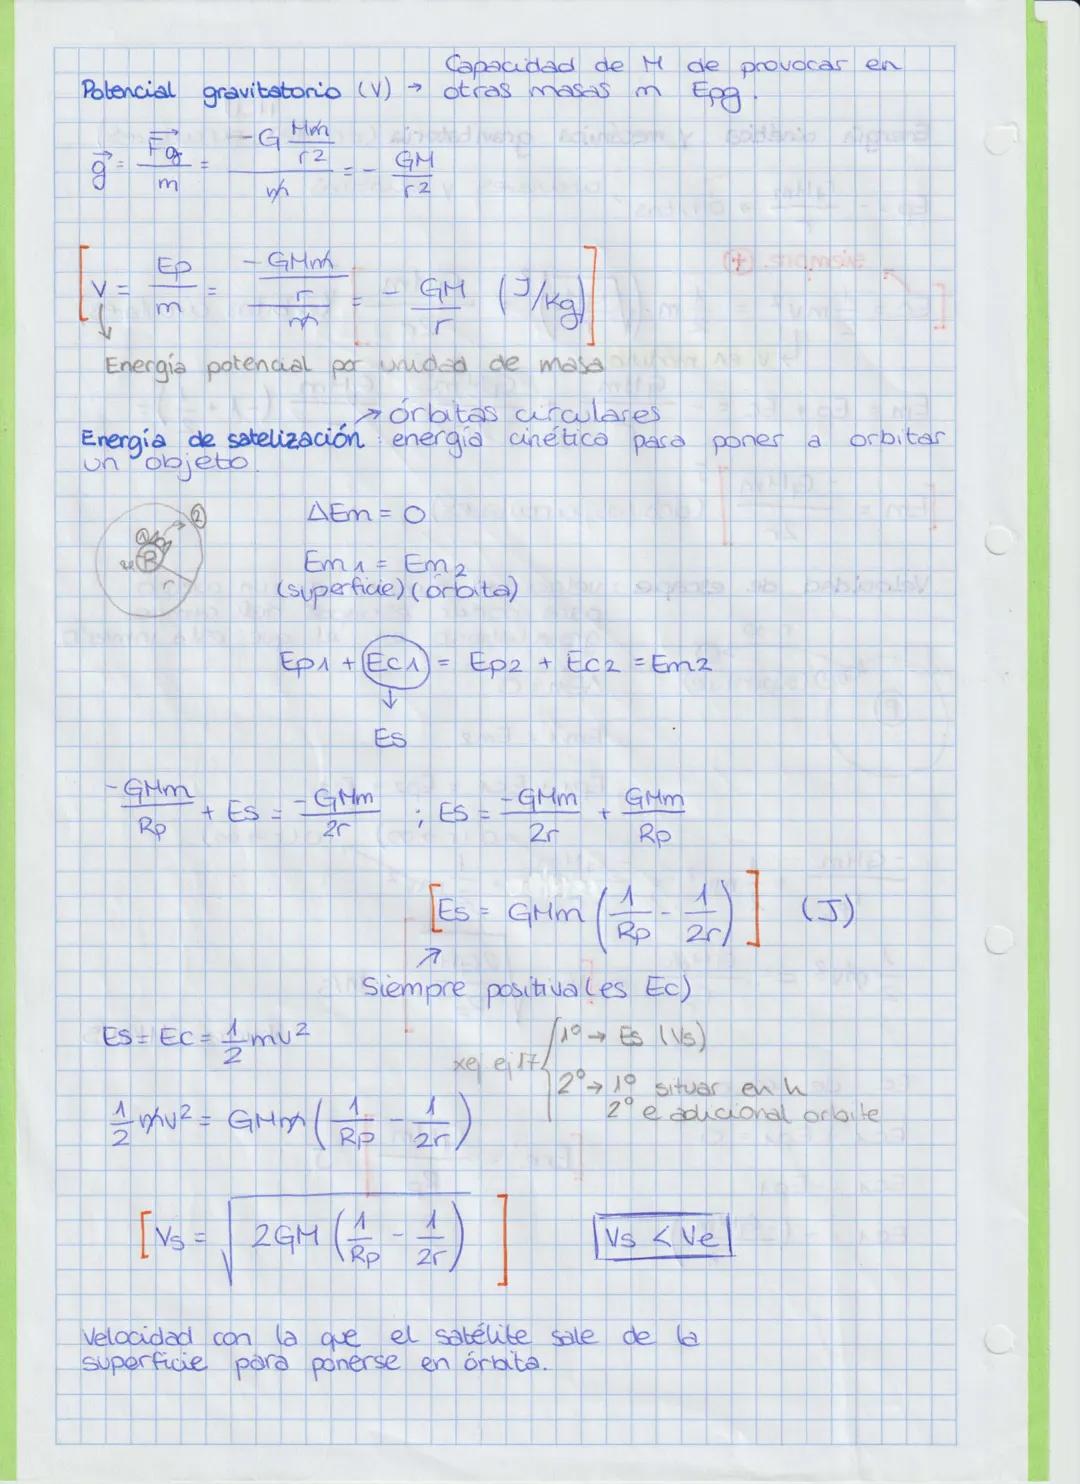 Capacidad de M de provocar en
Potencial gravitatorio (V) → otras masas m Epg.
g = Fg / m = (-G Mm / r2) / m = - GM / r2
[V = Ep / m = (- GMm / r) / m = - GM / r (J/kg)]
Energía potencial por unidad de masa
→ órbitas circulares
Energía de satelización: energía cinética para poner a orbitar
un objeto.
ΔEm = 0
Em1 = Em2
(superficie) (órbita)
Ep1 + Ec1 = Ep2 + Ec2 = Em2
↓
Es
-GMm / Rp + Es = -GMm / 2r ; Es = -GMm / 2r + GMm / Rp
[Es = GMm (1/Rp - 1/2r)] (J)
Siempre positiva (es Ec)
Es = Ec = 1/2 mv2
xej ej 17
1º → Es (Vs)
2º → 1º situar en h
2º e adicional orbite
1/2 mv2 = GMm (1/Rp - 1/2r)
[Vs = √2GM (1/Rp - 1/2r)]
Vs < Ve
Velocidad con la que el satélite sale de la
superficie para ponerse en órbita.